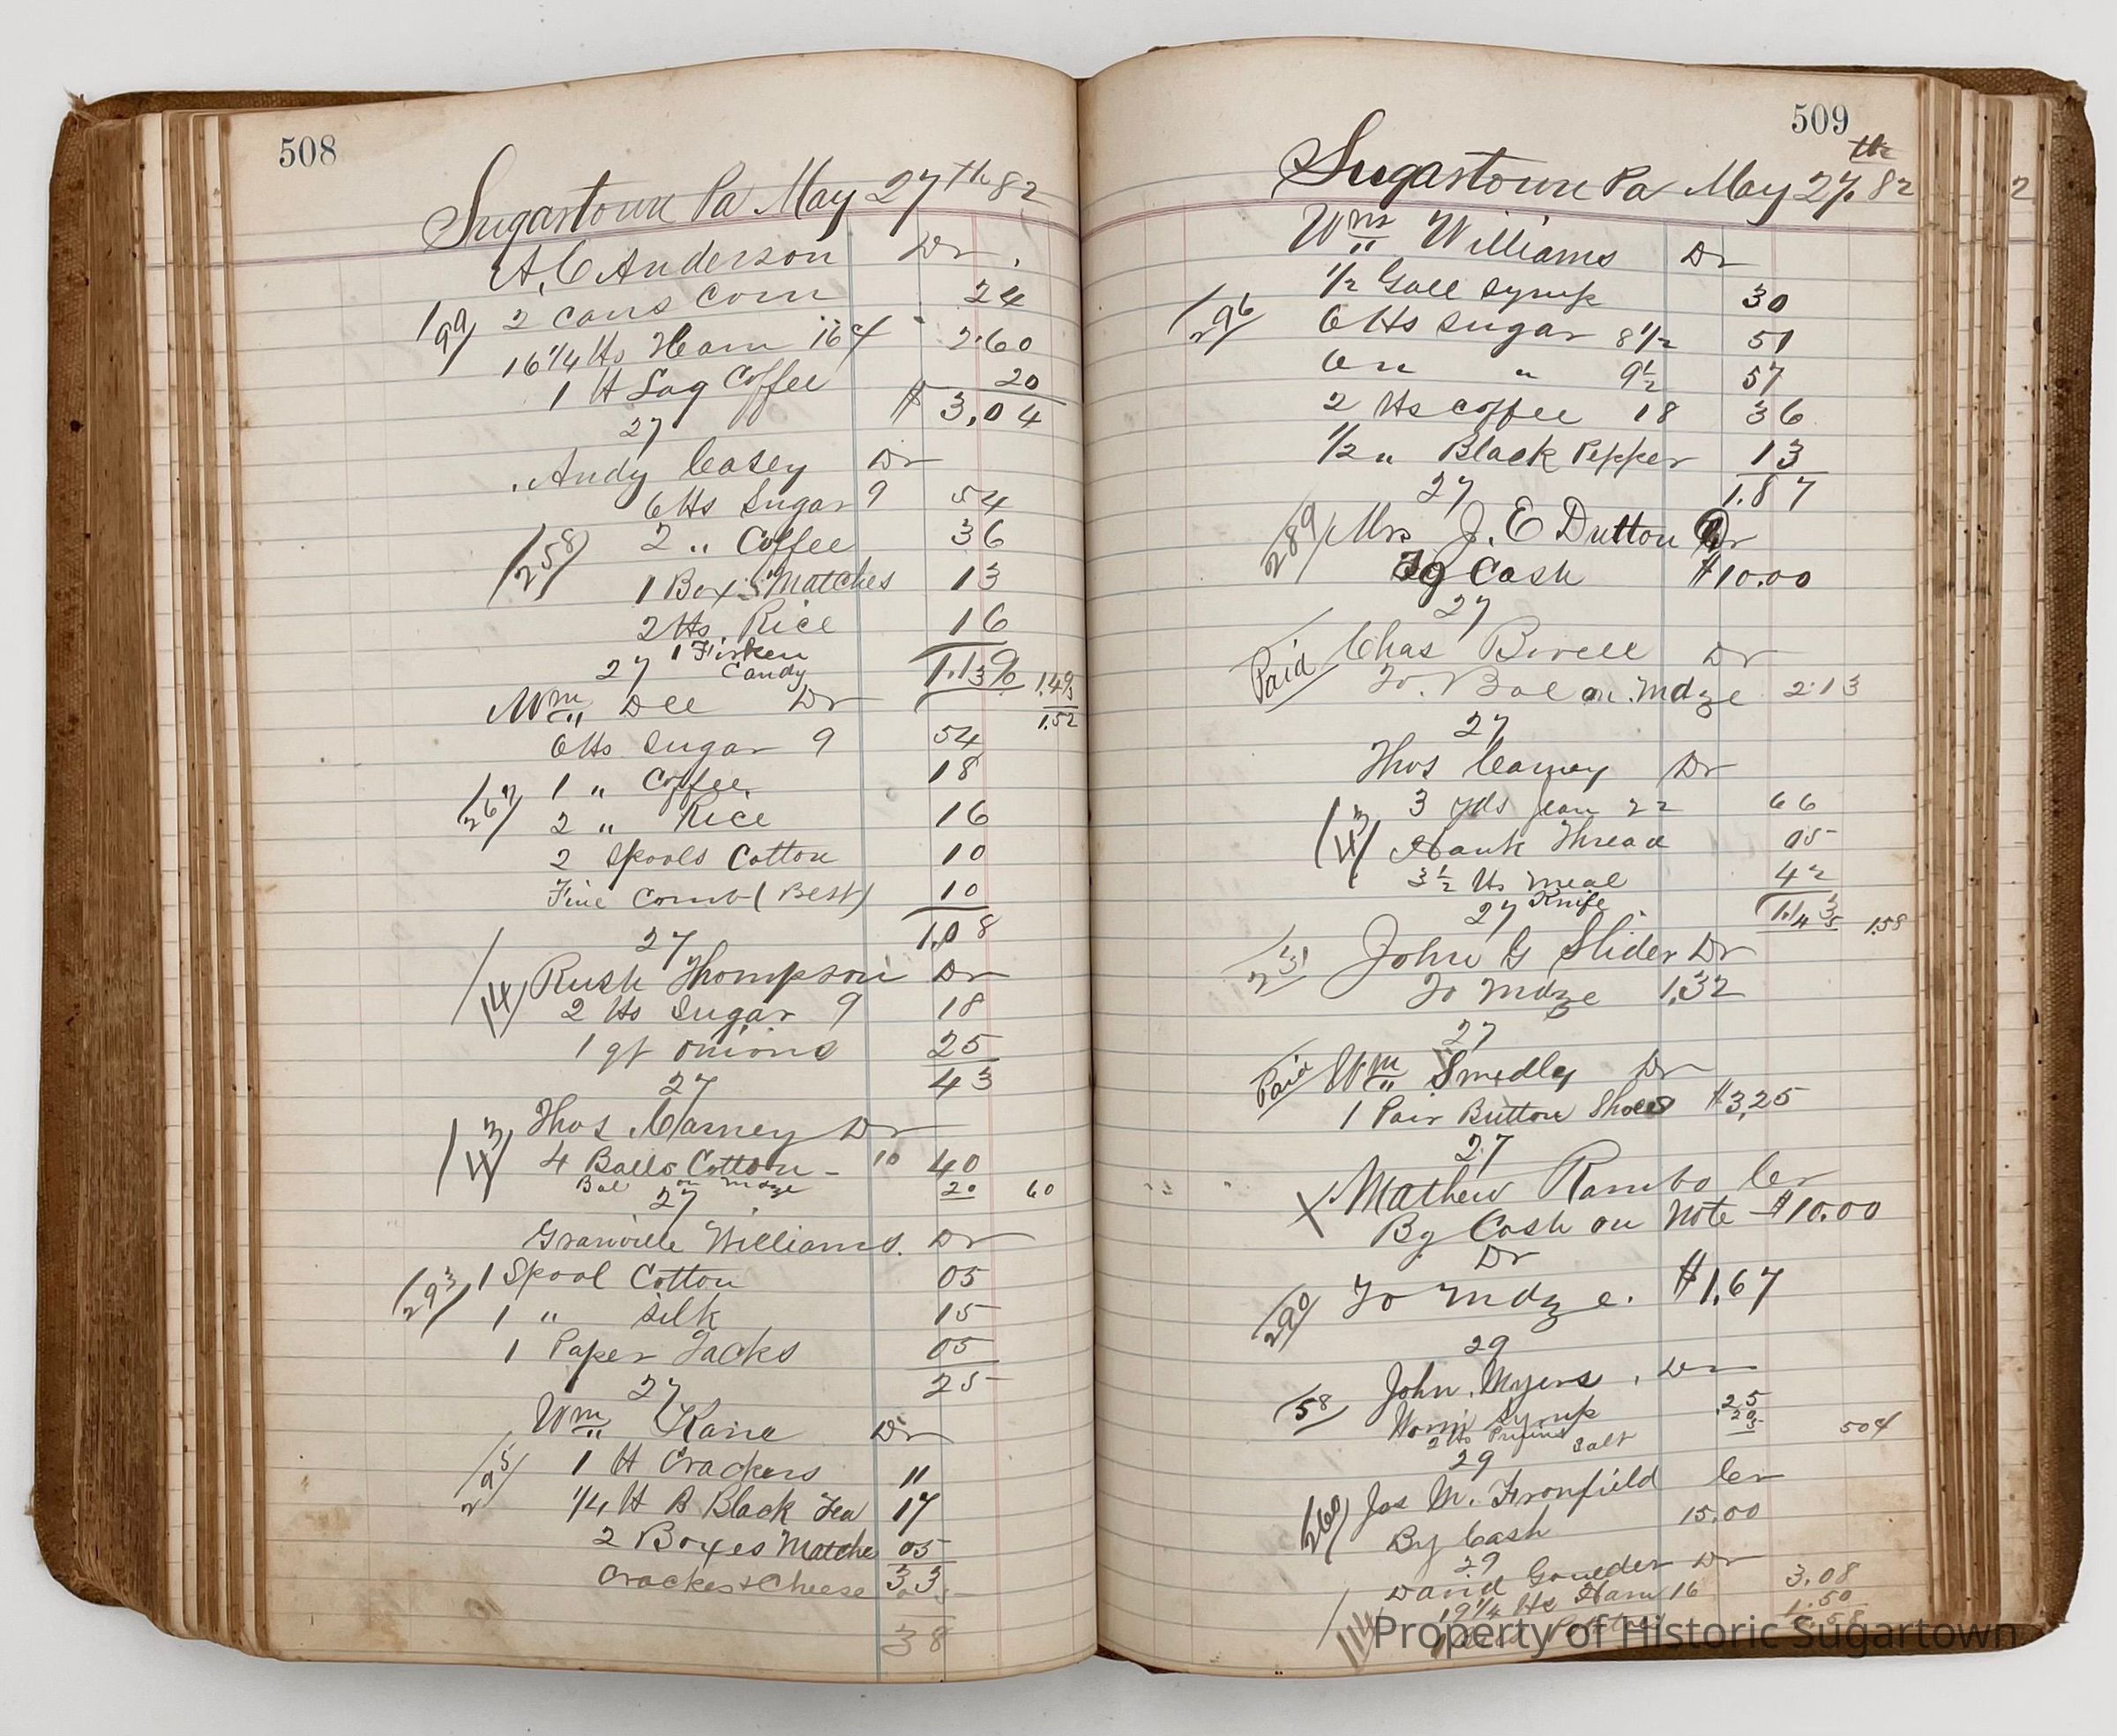 508
Sugartown Pa May 27th 82
A, C Anderson Dr.
199 2 cans Corn 24
16 1/4 lbs Ham 16¢ 2.60
1 lb Lag Coffee 20
27 $ 3,04
Andy Casey Dr
6 lbs Sugar 9 54
258 2 " Coffee 36
1 Box Matches 13
2 lbs Rice 16
1 Firken
27 Candy 1.19 1.49
Wm Dee Dr 1.52
6 lbs Sugar 9 54
267 1 " Coffee 18
2 " Rice 16
2 Spools Cotton 10
Fine Comb (Best) 10
27 1.08
14 Rush Thompson Dr
2 lbs Sugar 9 18
1 qt onions 25
27 43
143 Thos Carney Dr
4 Balls Cotton - 10 40
Bal on mdze 20 60
27
Granville Williams. Dr
293 1 Spool Cotton 05
1 " Silk 15
1 Paper Tacks 05
27 25
Wm Kane Dr
295 1 lb Crackers 11
1/4 lb B Black Tea 17
2 Boxes Matche 05
Crackes & Cheese 33
38
509
Sugartown Pa May 27th 82
Wm Williams Dr
1/2 Gall Syrup 30
296 6 lbs Sugar 8 1/2 51
6 " " 9 1/2 57
2 lbs Coffee 18 36
1/2 " Black Pepper 13
27 1.87
289 Mrs J. E Dutton Dr
Cash $10.00
27
Paid Chas Bivell Dr
To. Bal on. Mdze 2.13
27
Thos Carney Dr
3 yds Jean 22 66
143 Hank Thread 05
3 1/2 lbs meal 42
27 Knife 1.58
231 John G Slider Dr
To Mdze 1.32
27
Paid Wm Smedly Dr
1 Pair Button Shoes $3,25
27
X Mathew Rambo Cr
By Cash on Note $10.00
Dr
290 To Mdze. $1,67
29
58 John. Myers, Dr
Worm Syrup 25
2 lbs Pruins Salt 50¢
29
260 Jas M. Fronfield Cr
By Cash 15.00
29
David Goueder Dr
19 1/4 lbs Ham 16 3.08
114 1.50
Property of Historic Sugartown